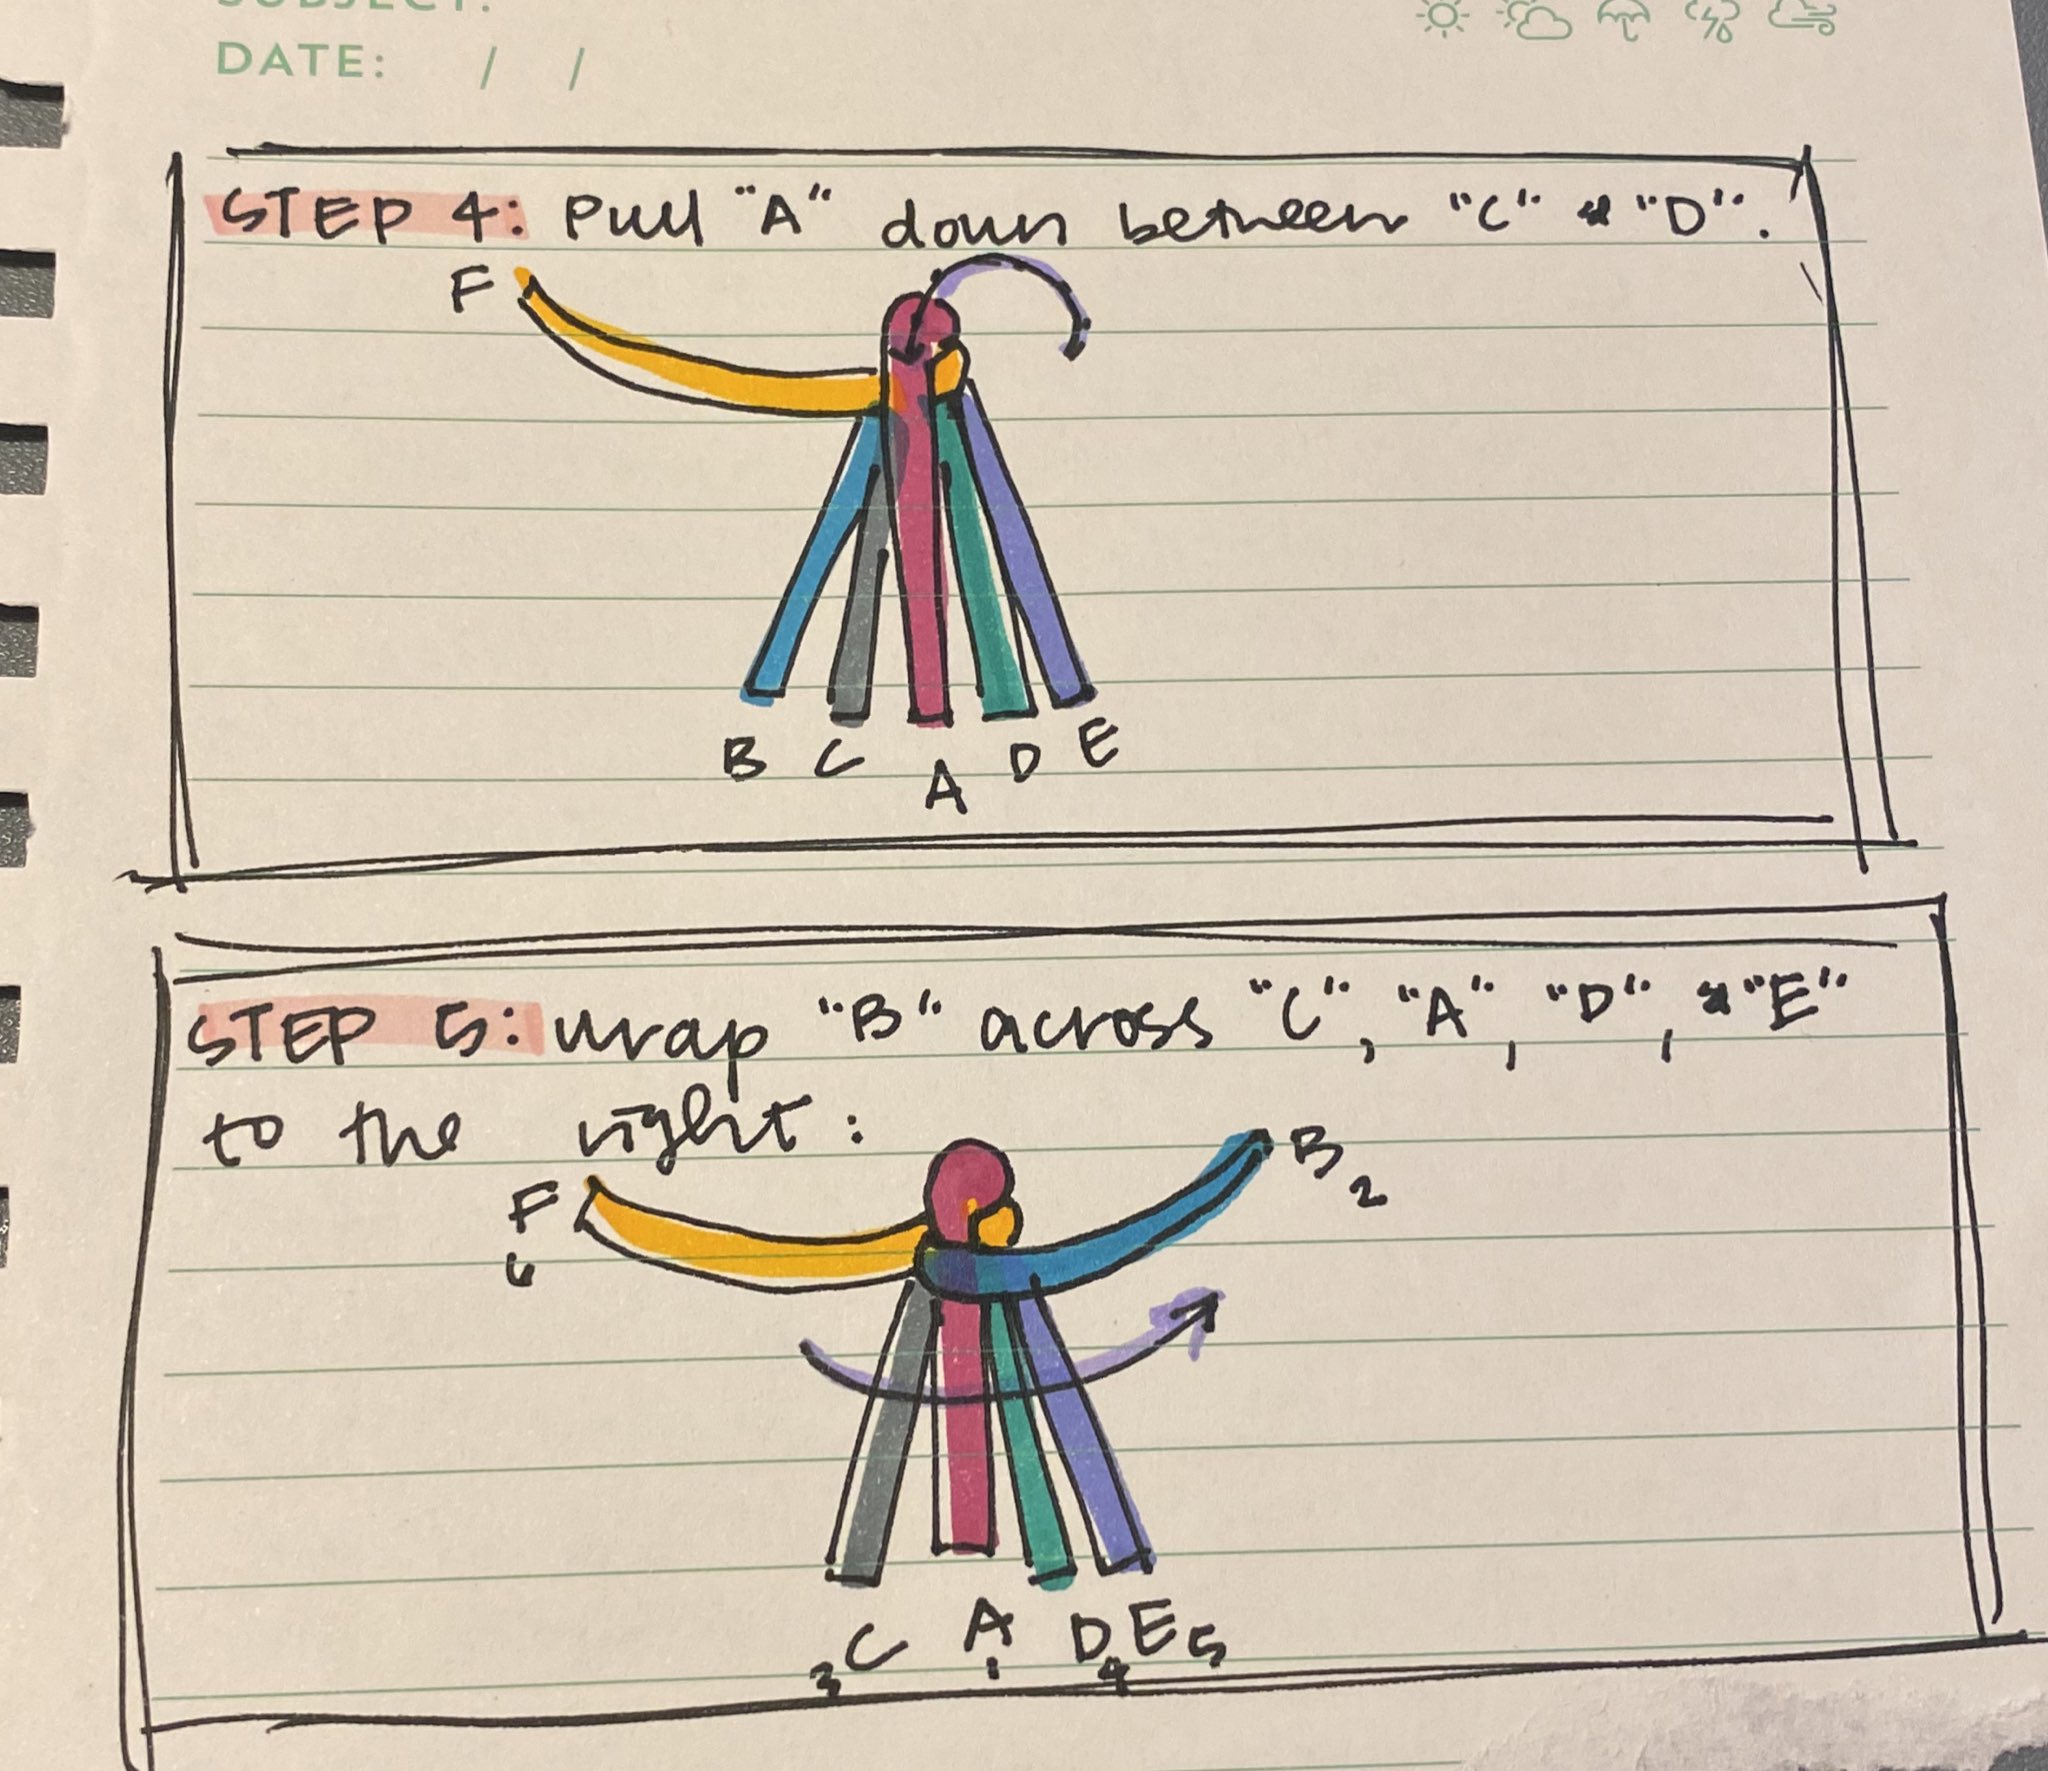 SUBJECT:
DATE: / /
STEP 4: Pull "A" down between "C" & "D".
F
B C A D E
STEP 5: wrap "B" across "C", "A", "D", & "E"
to the right:
F B
6 2
C A D E
3 1 4 5